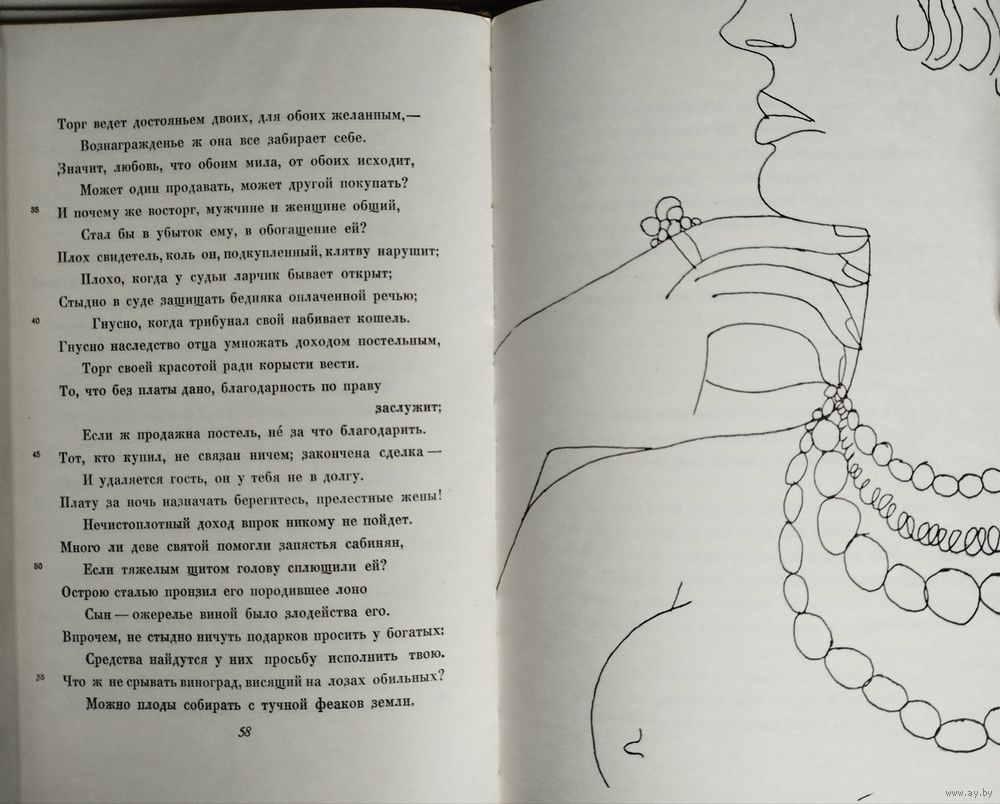 Торг ведет достояньем двоих, для обоих желанным,—
Вознагражденье ж она все забирает себе.
Значит, любовь, что обоим мила, от обоих исходит,
Может один продавать, может другой покупать?
35 И почему же восторг, мужчине и женщине общий,
Стал бы в убыток ему, в обогащение ей?
Плох свидетель, коль он, подкупленный, клятву нарушит;
Плохо, когда у судьи ларчик бывает открыт;
Стыдно в суде защищать бедняка оплаченной речью;
40 Гнусно, когда трибунал свой набивает кошель.
Гнусно наследство отца умножать доходом постельным,
Торг своей красотой ради корысти вести.
То, что без платы дано, благодарность по праву
заслужит;
Если ж продажна постель, не́ за что благодарить.
45 Тот, кто купил, не связан ничем; закончена сделка —
И удаляется гость, он у тебя не в долгу.
Плату за ночь назначать берегитесь, прелестные жены!
Нечистоплотный доход впрок никому не пойдет.
Много ли деве святой помогли запястья сабинян,
50 Если тяжелым щитом голову сплющили ей?
Острою сталью пронзил его породившее лоно
Сын — ожерелье виной было злодейства его.
Впрочем, не стыдно ничуть подарков просить у богатых:
Средства найдутся у них просьбу исполнить твою.
55 Что ж не срывать виноград, висящий на лозах обильных?
Можно плоды собирать с тучной феаков земли.
58
www.ay.by